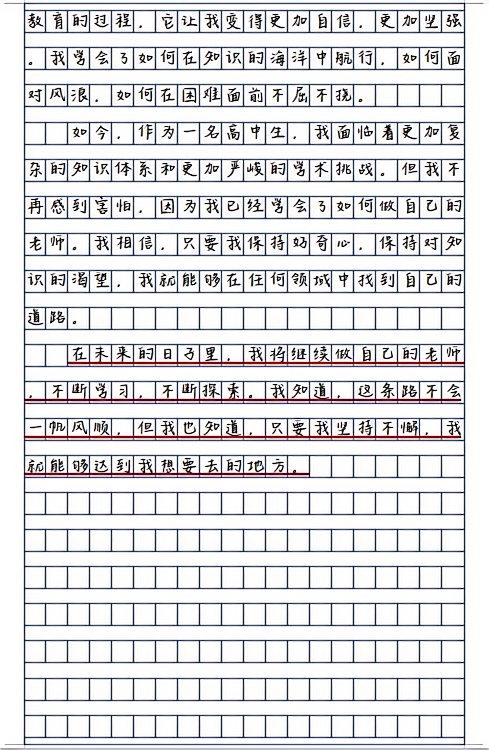 教育的过程，它让我变得更加自信，更加坚强
。我学会了如何在知识的海洋中航行，如何面
对风浪，如何在困难面前不屈不挠。
如今，作为一名高中生，我面临着更加复
杂的知识体系和更加严峻的学术挑战。但我不
再感到害怕，因为我已经学会了如何做自己的
老师。我相信，只要我保持好奇心，保持对知
识的渴望，我就能够在任何领域中找到自己的
道路。
在未来的日子里，我将继续做自己的老师
，不断学习，不断探索。我知道，这条路不会
一帆风顺，但我也知道，只要我坚持不懈，我
就能够达到我想要去的地方。